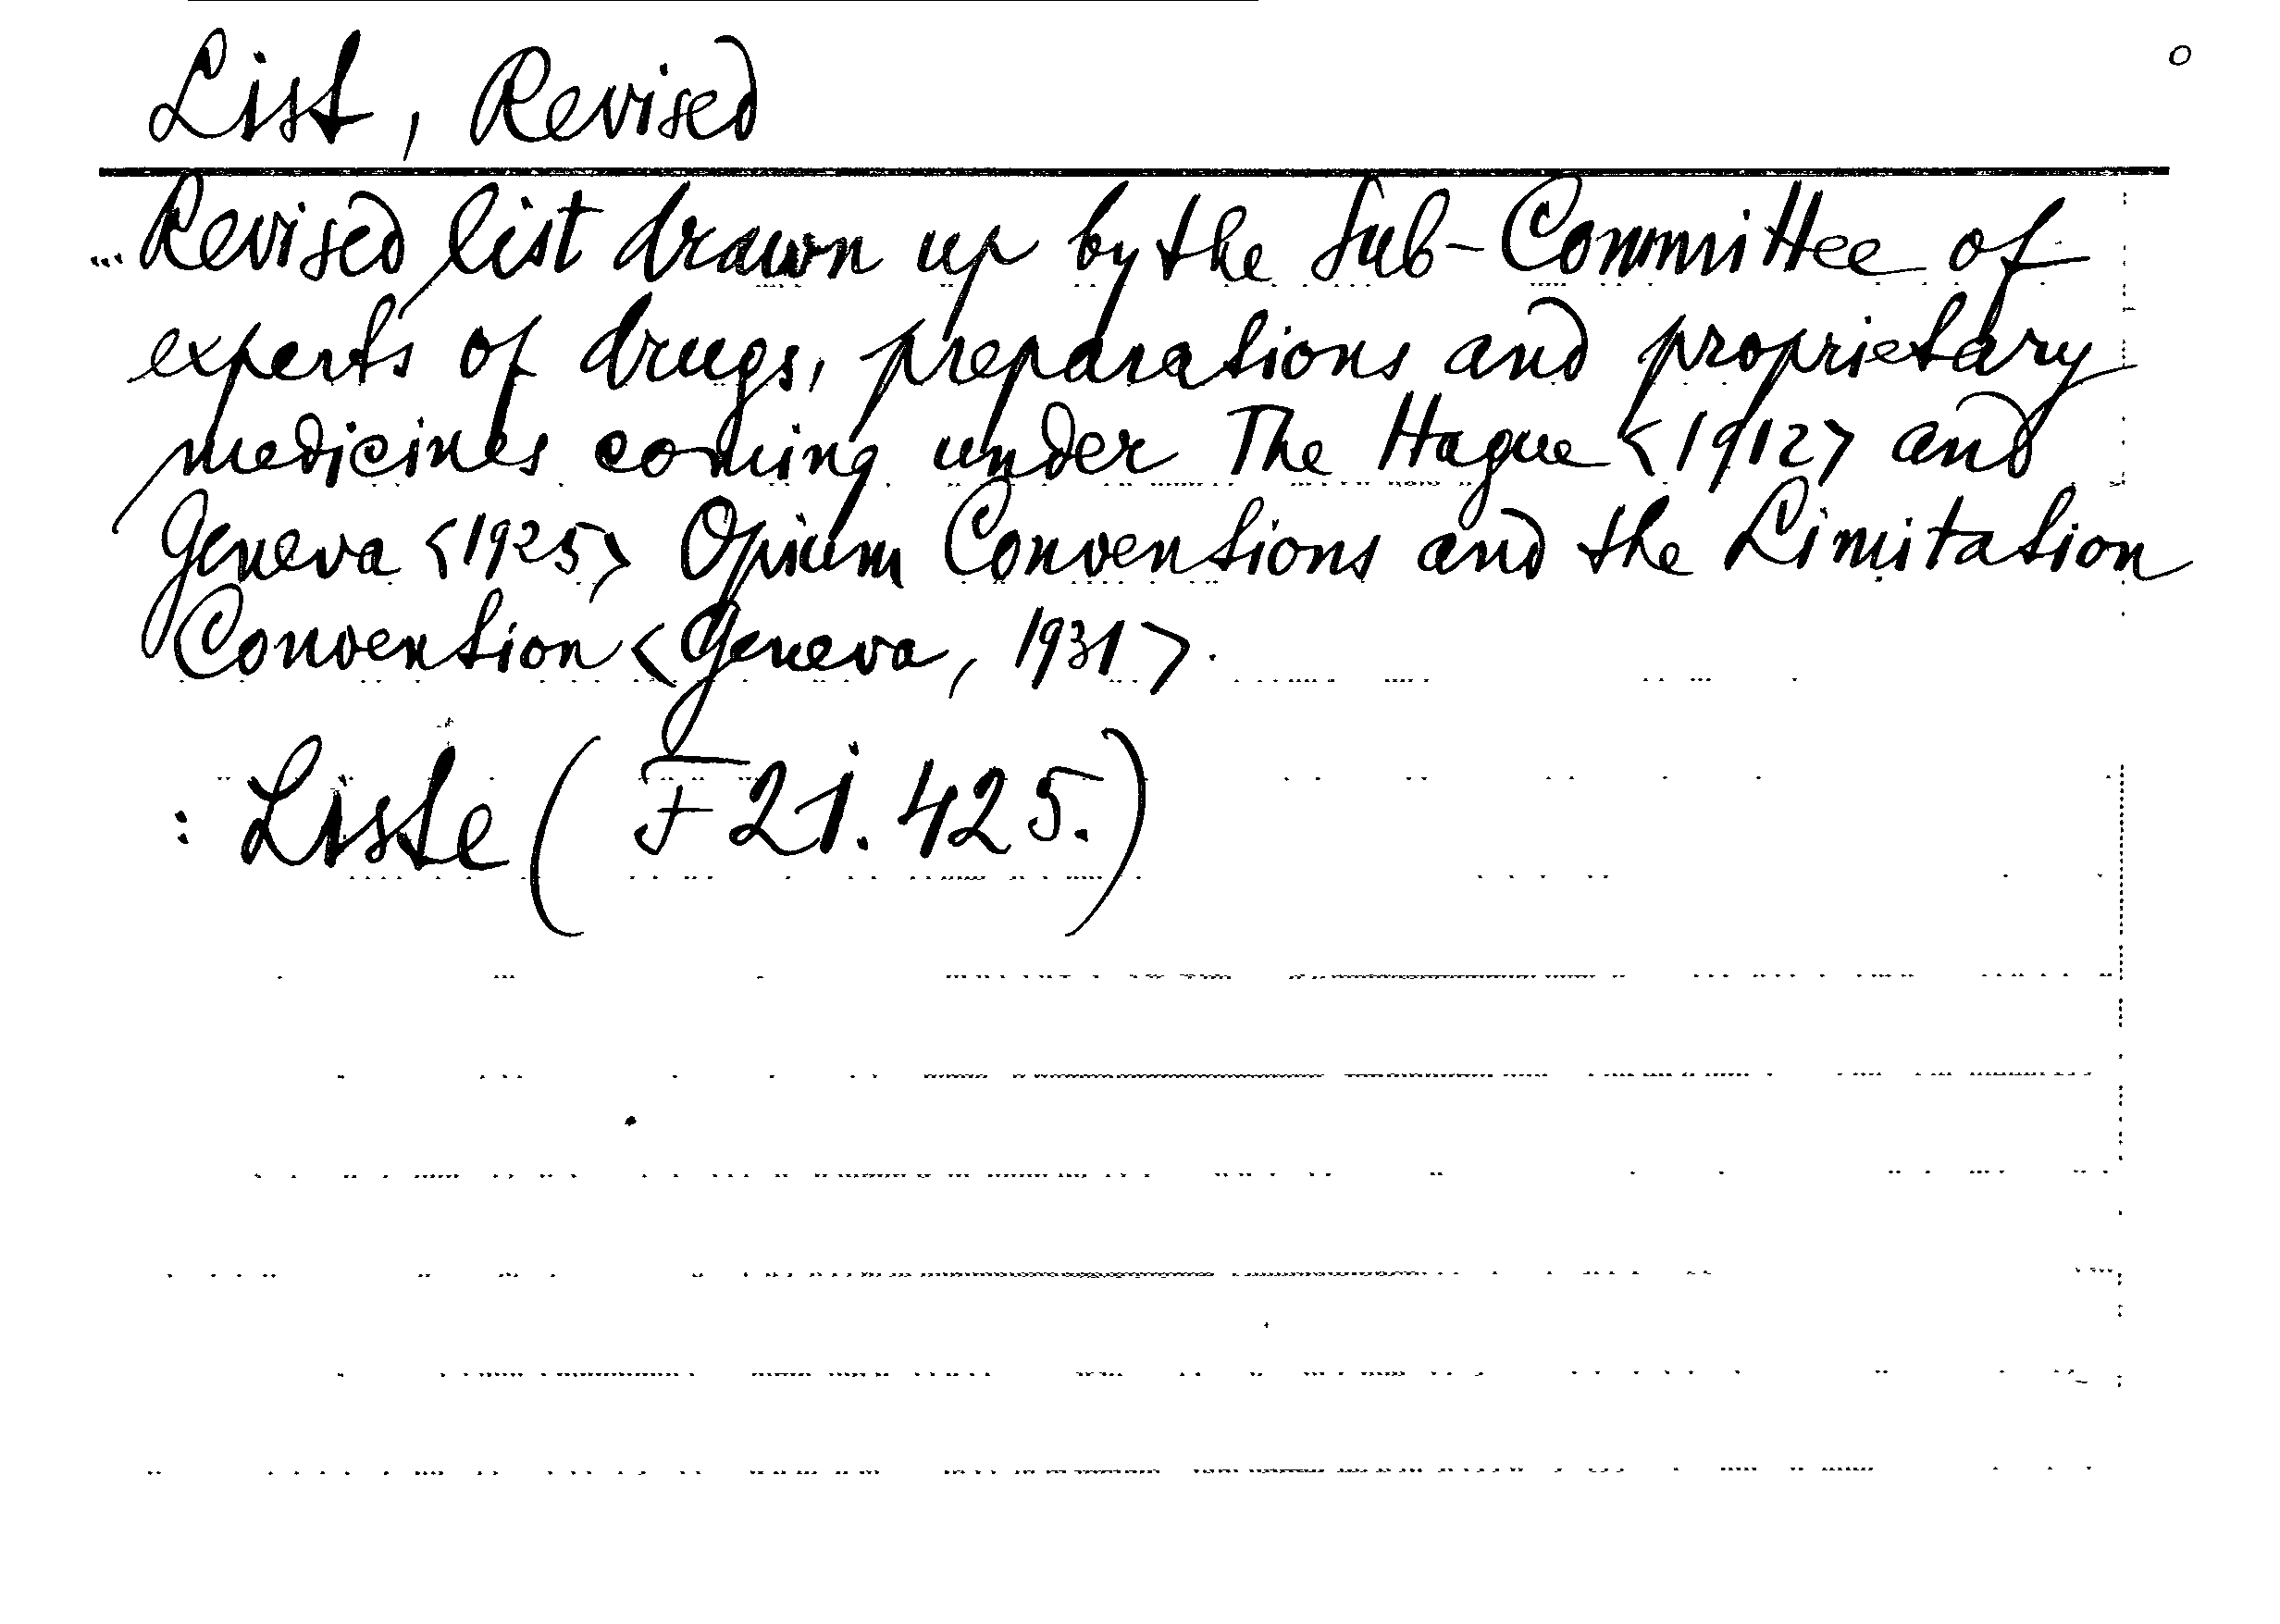 List, Revised
Revised list drawn up by the Sub-Committee of
experts of drugs, preparations and proprietary
medicines coming under The Hague <1912> and
Geneva <1925> Opium Conventions and the Limitation
Convention <Geneva, 1931>.
: Liste (F 21.425.)